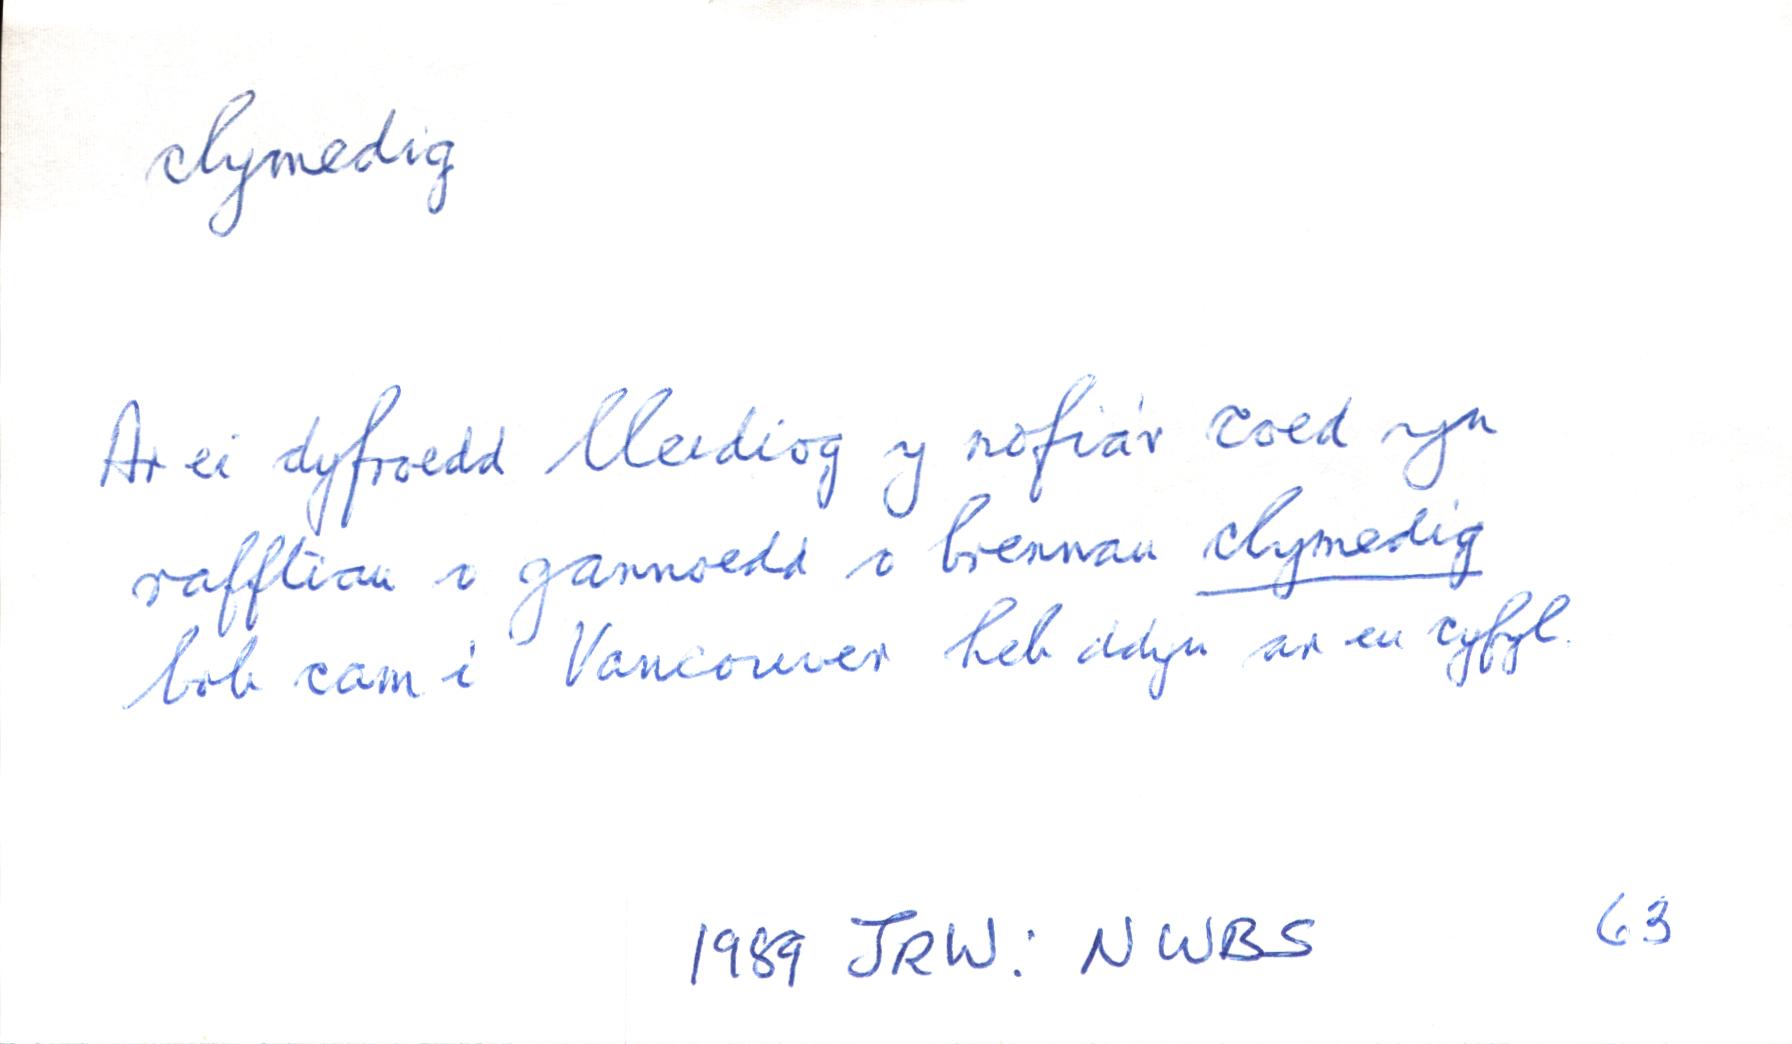 clymedig
Ar ei dyfroedd lleidiog y nofia'r coed yn
rafftiau o gannoedd o brennau clymedig
bob cam i Vancouver heb ddyn ar eu cyfyl.
1989 JRW: NWBS 63